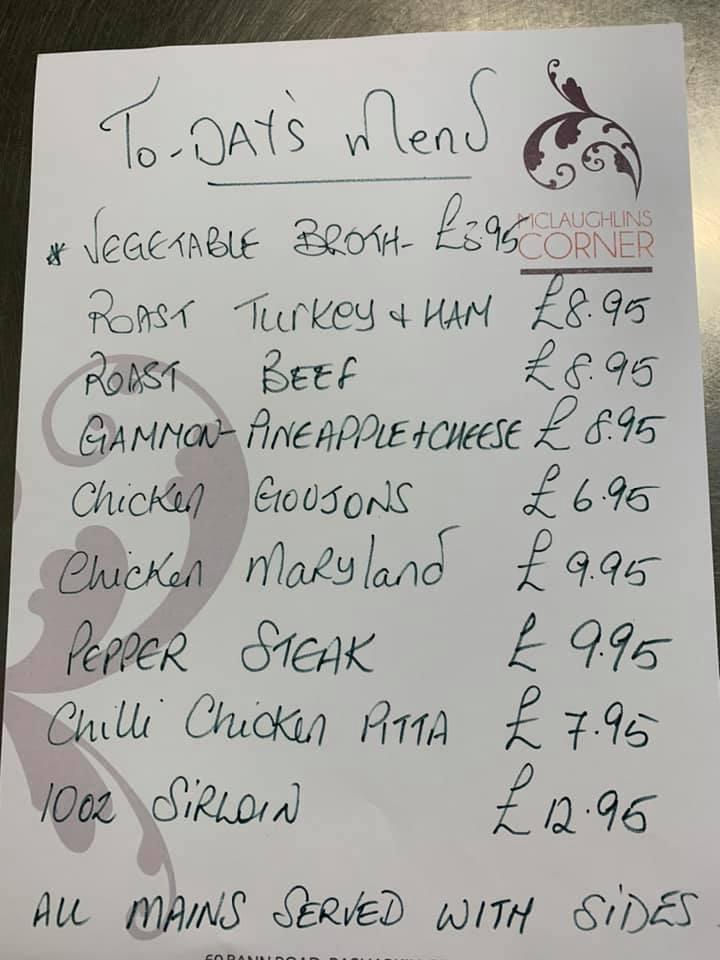 To-DAY'S menu
MCLAUGHLINS
CORNER
* VEGETABLE BROTH- £3.95
ROAST Turkey + HAM £8.95
ROAST BEEF £8.95
GAMMON-PINEAPPLE+CHEESE £8.95
Chicken GOUJONS £6.95
Chicken Maryland £9.95
PEPPER STEAK £9.95
Chilli Chicken PITTA £7.95
10oz SiRLOIN £12.95
ALL MAINS SERVED WITH SiDES.